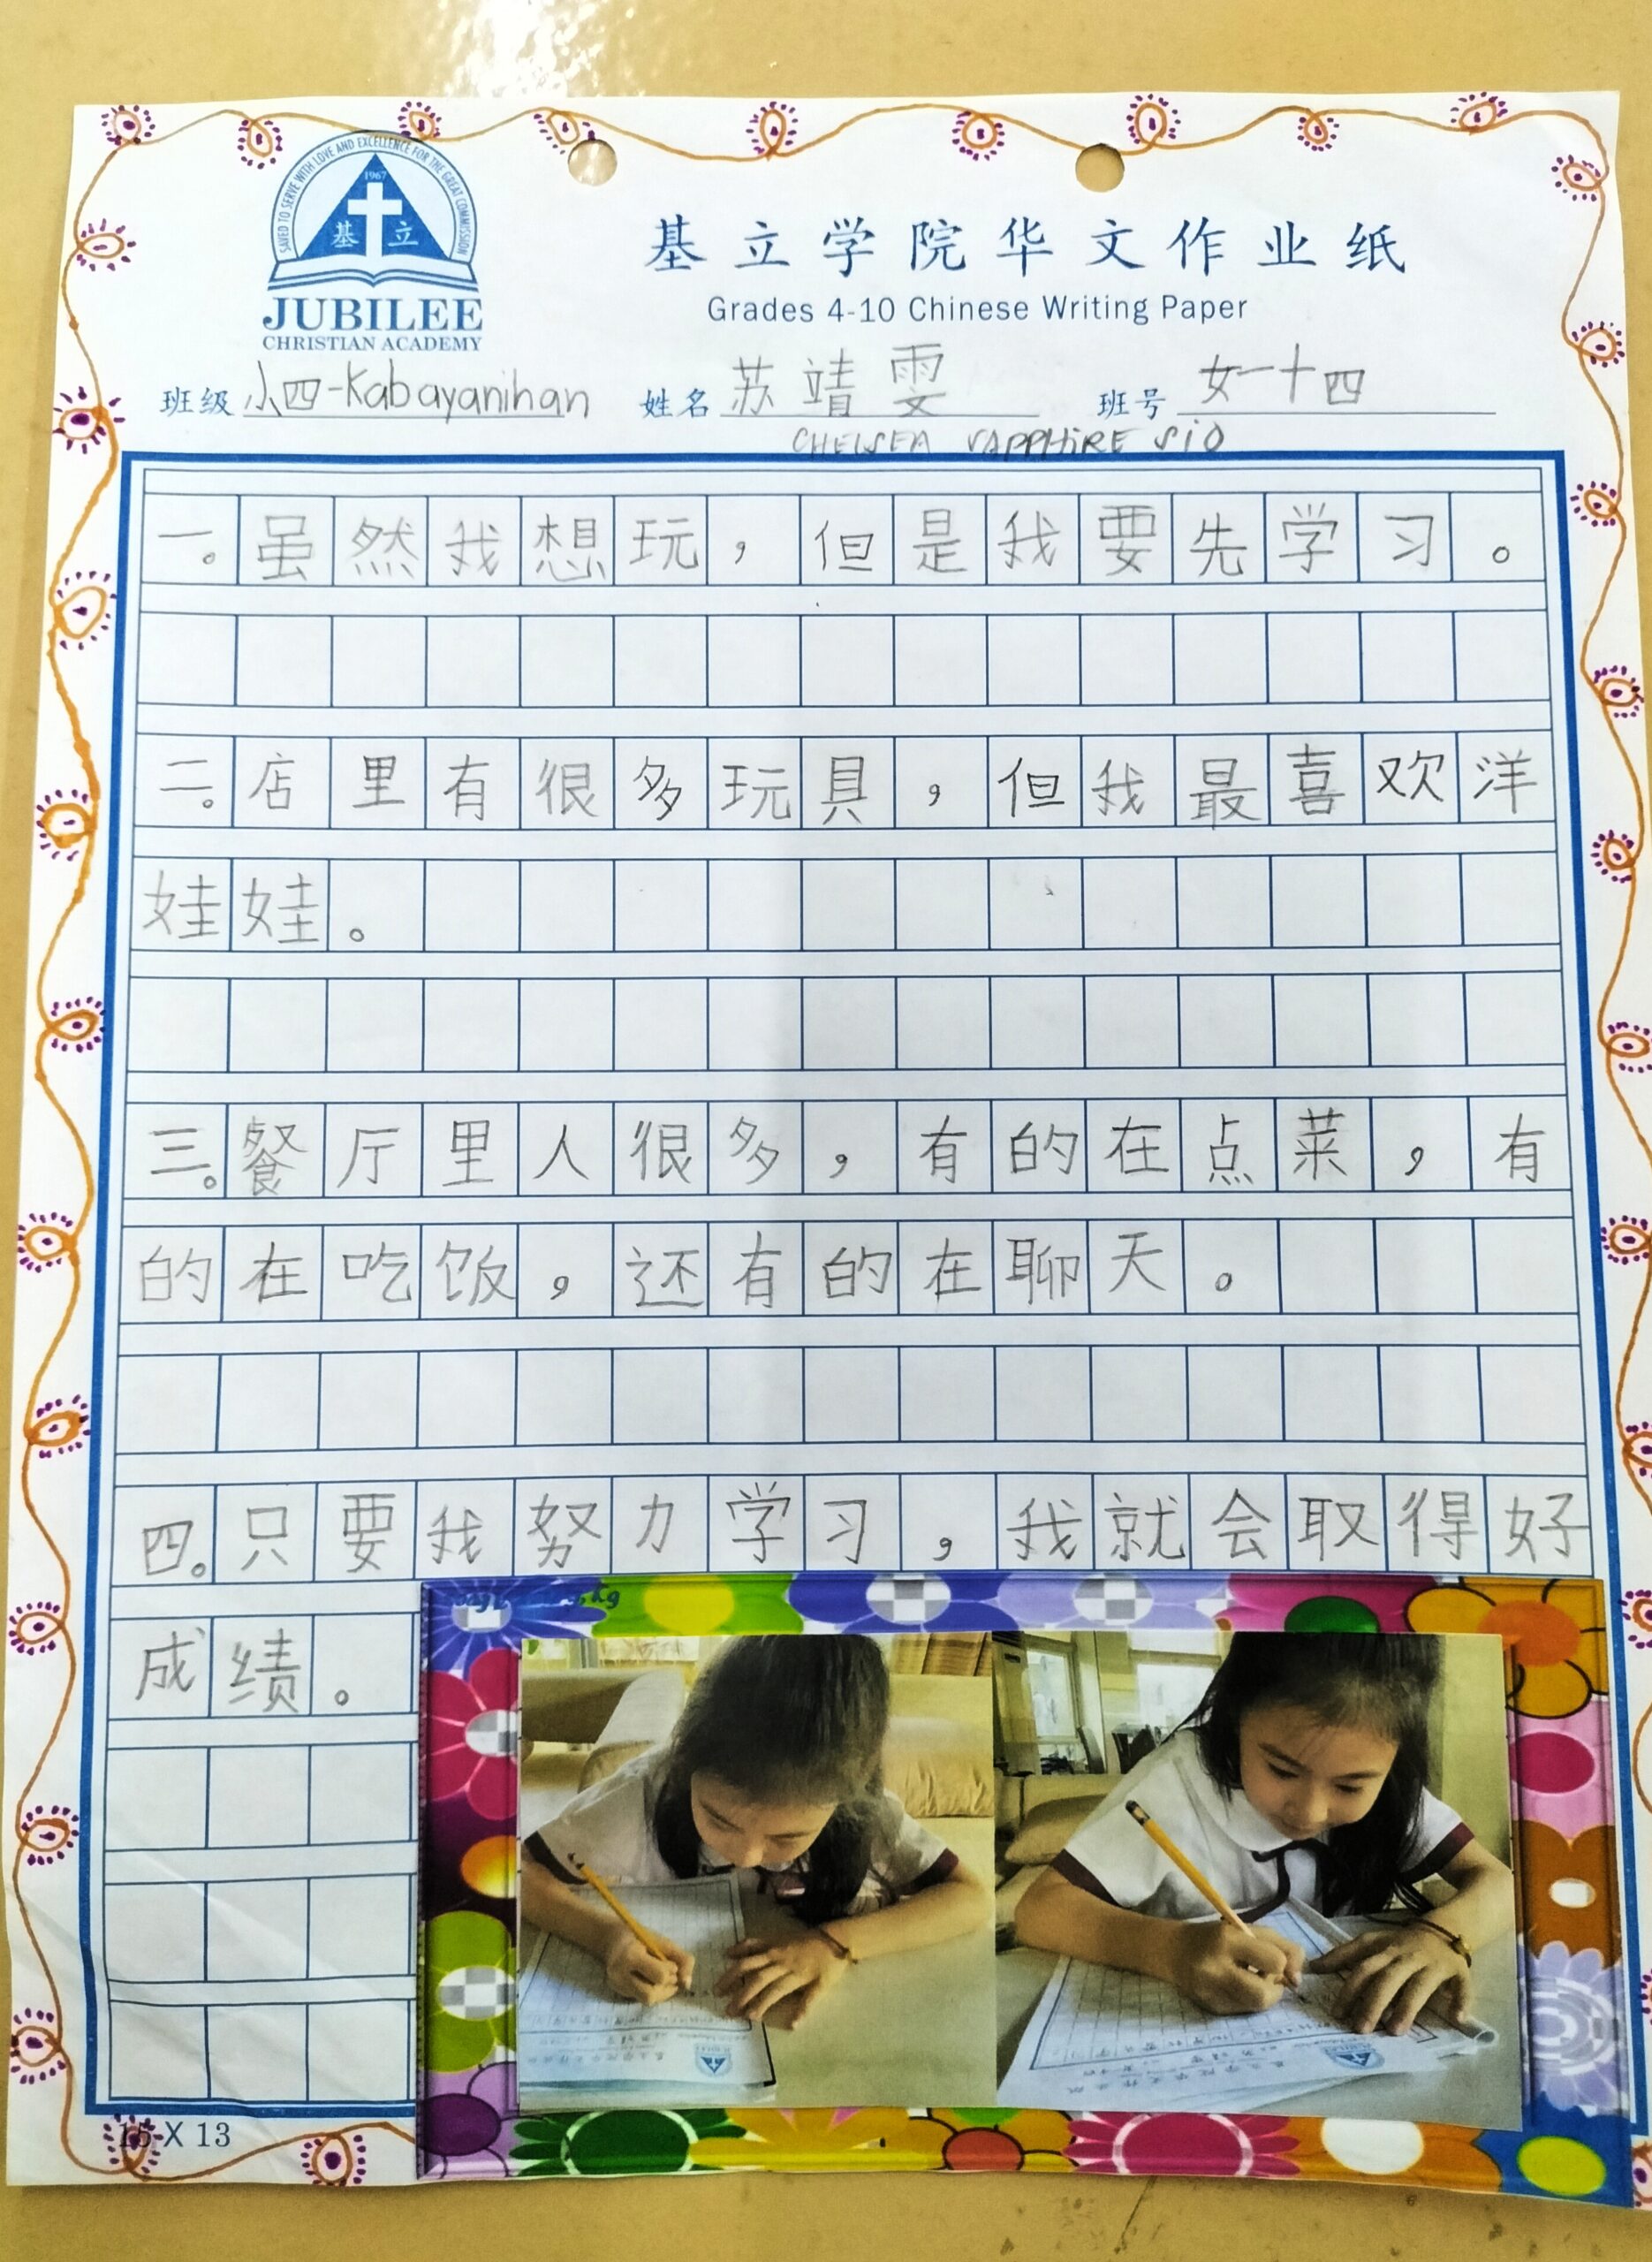 SAVED TO SERVE WITH LOVE AND EXCELLENCE FOR THE GREAT COMMISSION
1967
基 立
JUBILEE
CHRISTIAN ACADEMY
基立学院华文作业纸
Grades 4-10 Chinese Writing Paper
班级 小四-Kabayanihan 姓名 苏靖雯 班号 女一十四
CHELSEA SAPPHIRE SIO
一。虽然我想玩，但是我要先学习。
二。店里有很多玩具，但我最喜欢洋
娃娃。
三。餐厅里人很多，有的在点菜，有
的在吃饭，还有的在聊天。
四。只要我努力学习，我就会取得好
成绩。
15 X 13